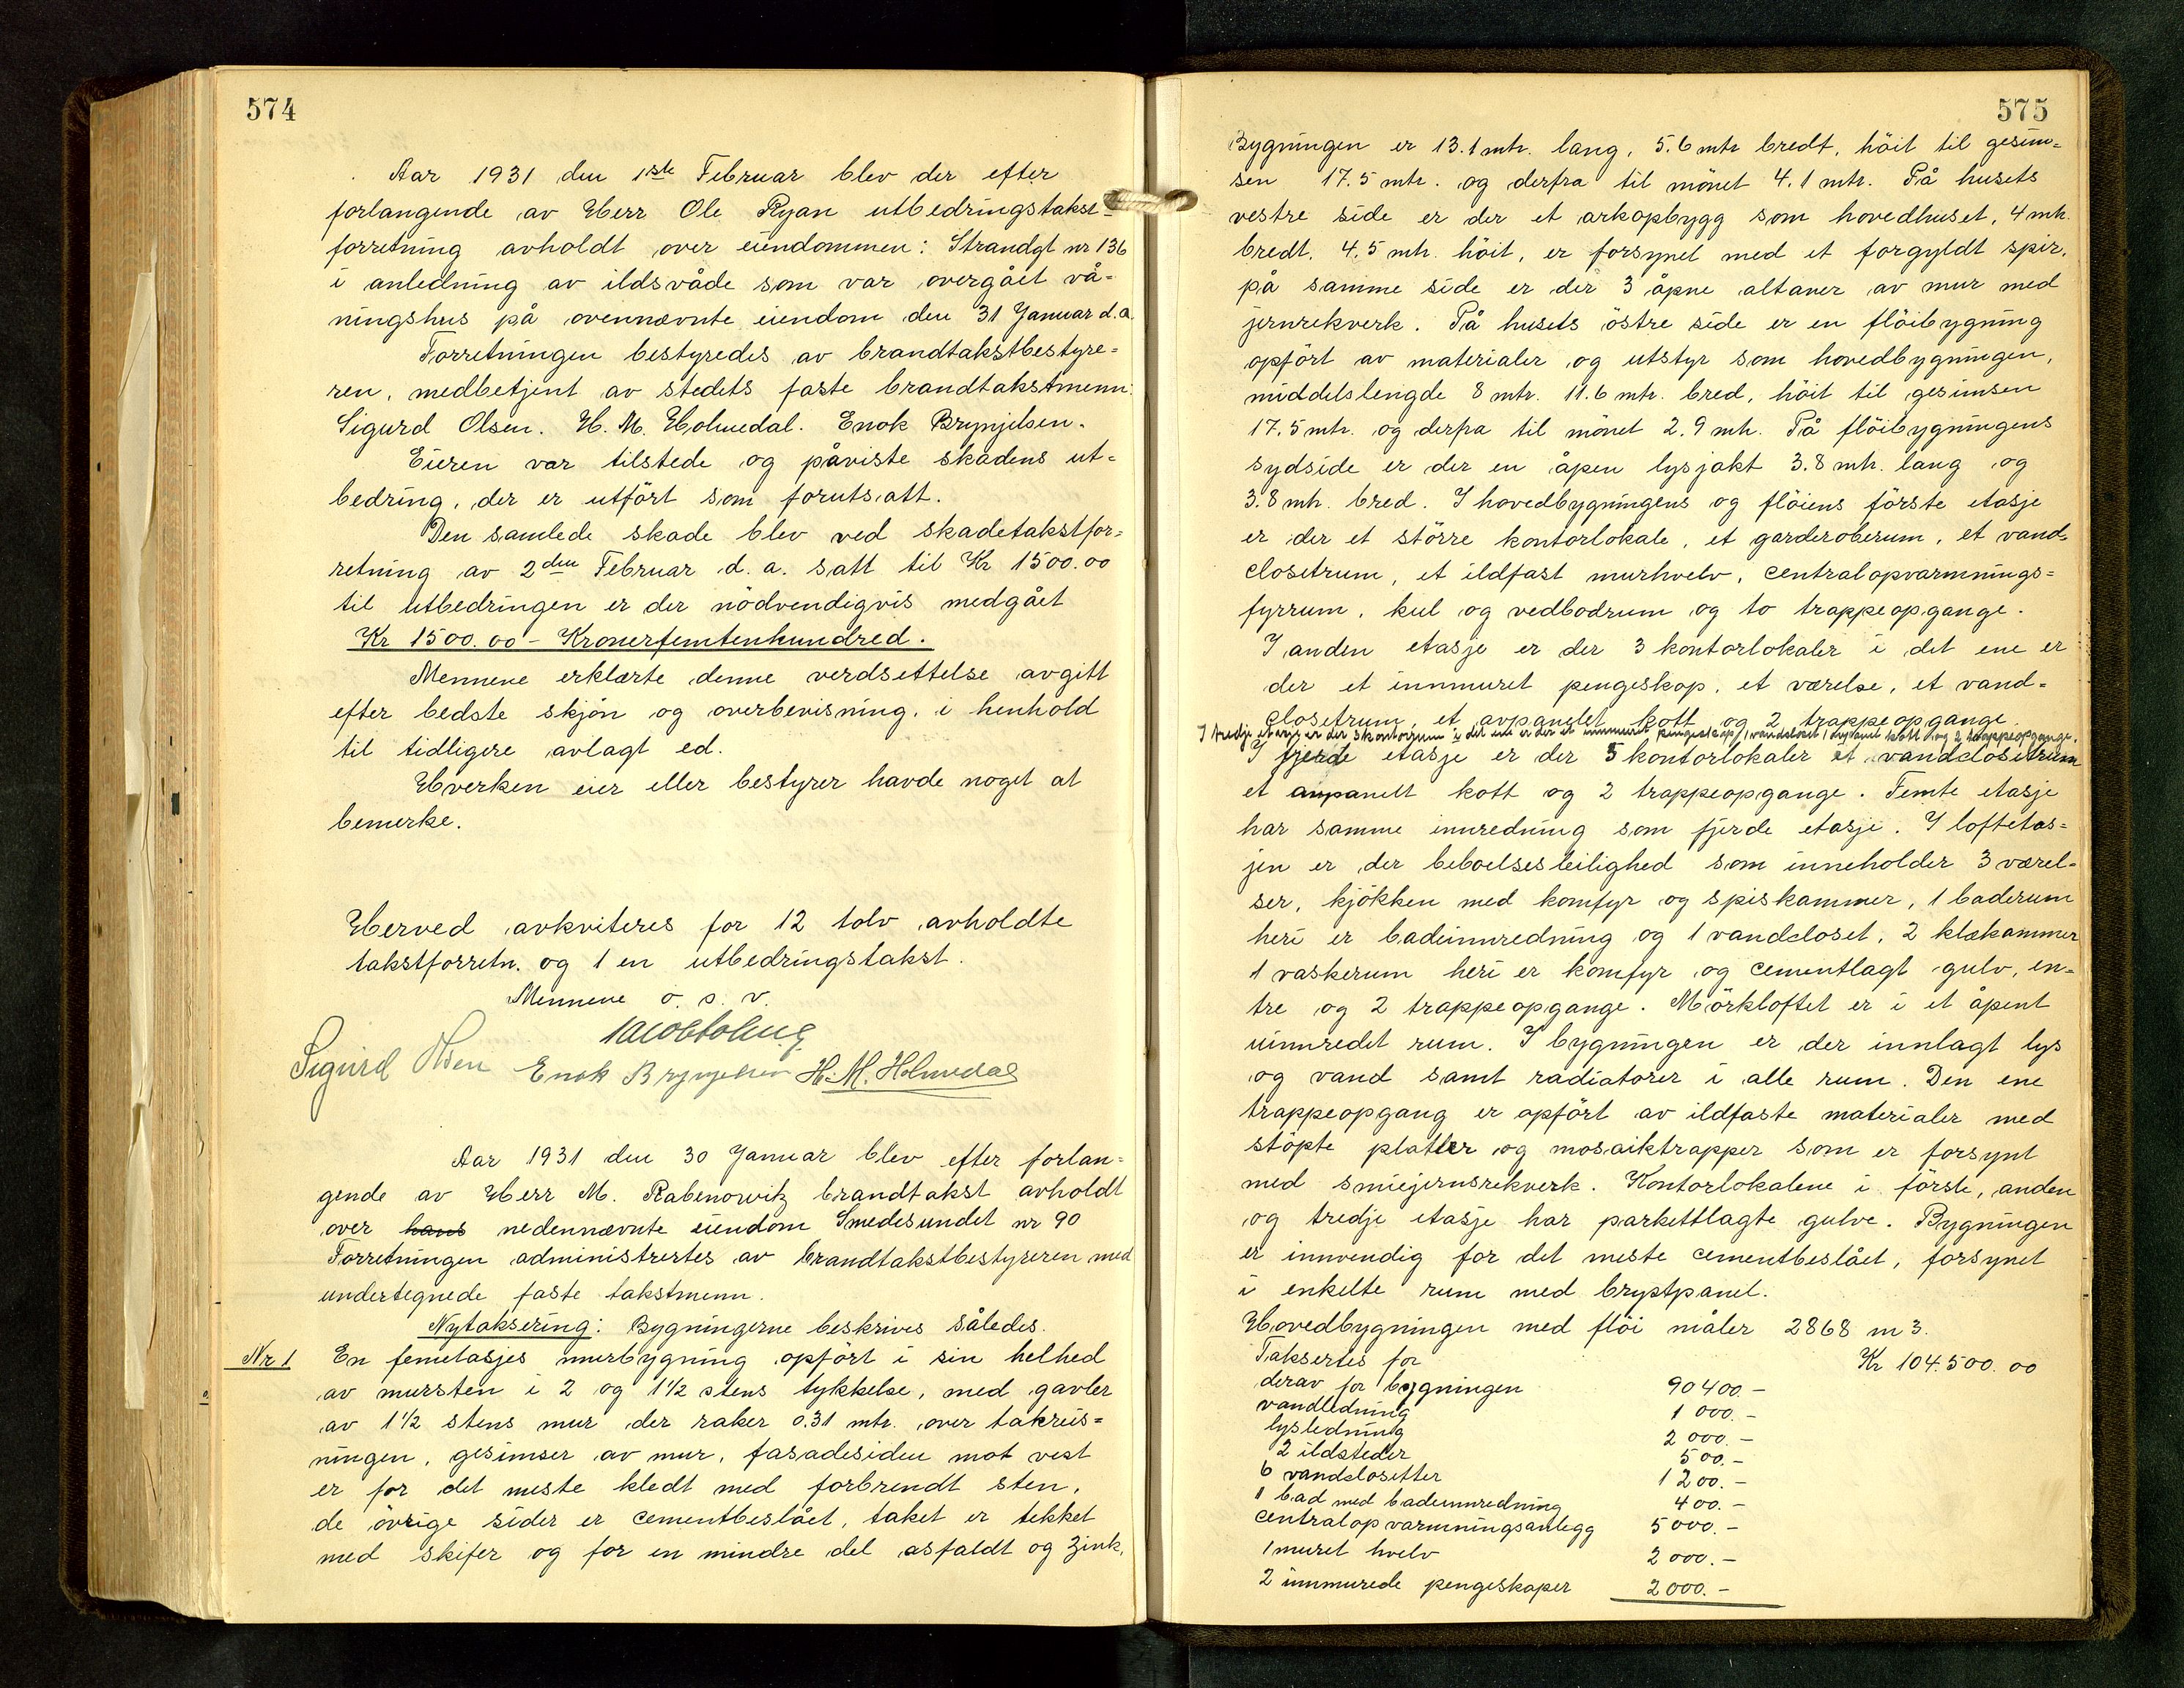 574
Aar 1931 den 1ste Februar blev der efter
forlangende av Herr Ole Ryan utbedringstakst-
forretning avholdt over eiendommen: Strandgt nr 136
i anledning av ildsvåde som var overgået vå=
ningshus på ovennævnte eiendom den 31 Januar d.a.
Forretningen bestyredes av brandtakstbestyre=
ren, medbetjent av stedets faste brandtakstmenn:
Sigurd Olsen. H. M. Holmedal. Enok Brynjelsen.
Eieren var tilstede og påviste skadens ut=
bedring, der er utfört som forutsatt.
Den samlede skade blev ved skadetakstfor=
retning av 2den Februar d. a. satt til Kr 1500.00
til utbedringen er der nödvendigvis medgået
Kr 1500.00 - Kronerfemtenhundred.
Mennene erklærte denne verdsettelse avgitt
efter bedste skjön og overbevisning, i henhold
til tidligere avlagt ed.
Hverken eier eller bestyrer havde noget at
bemerke.
Herved avkviteres for 12 tolv avholdte
takstforretn. og 1 en utbedringstakst.
Mennene o. s. v.
Sigurd Olsen Enok Brynjelsen H. M. Holmedal
Aar 1931 den 30 Januar blev efter forlan=
gende av Herr M. Rabenowitz brandtakst avholdt
over hans nedennævnte eiendom Smedesundet nr 90
Forretningen administrertes av brandtakstbestyreren med
undertegnede faste takstmenn.
Nytaksering: Bygningerne beskrives således.
Nr 1 En femetasjes murbygning opfört i sin helhed
av mursten i 2 og 1½ stens tykkelse, med gavler
av 1½ stens mur der raker 0.31 mtr. over takreis=
ningen, gesimser av mur, fasadesiden mot vest
er for det meste kledt med forbrendt sten,
de övrige sider er cementbeslået, taket er tekket
med skifer og for en mindre del asfaldt og Zink.
575
Bygningen er 13.1 mtr. lang, 5.6 mtr bredt, höit til gesim=
sen 17.5 mtr. og derfra til mönet 4.1 mtr. På husets
vestre side er der et arkopbygg som hovedhuset, 4 mtr.
bredt, 4.5 mtr. höit, er forsynet med et forgyldt spir,
på samme side er der 3 åpne altaner av mur med
jernrekverk. På husets östre side er en flöibygning
opfört av materialer og utstyr som hovedbygningen,
middelslengde 8 mtr. 11.6 mtr. bred, höit til gesimsen
17.5 mtr. og derfra til mönet 2.9 mtr. På flöibygningens
sydside er der en åpen lysjakt 3.8 mtr. lang og
3.8 mtr. bred. I hovedbygningens og flöiens förste etasje
er der et större kontorlokale, et garderoberum, et vand=
closetrum, et ildfast murhvelv, centralopvarmnings=
fyrrum, kul og vedbodrum og to trappeopgange.
I anden etasje er der 3 kontorlokaler i det ene er
der et innmuret pengeskap, et værelse, et vand=
closetrum, et avpanelet kott og 2 trappeopgange.
I tredje etasje er der 3 kontorrum i det ene er der et innmuret pengeskap, 1 vandcloset 1 avpanelt kott og 2 trappeopgange.
I fjerde etasje er der 5 kontorlokaler et vandclosetrum
et avpanelt kott og 2 trappeopgange. Femte etasje
har samme innredning som fjerde etasje. I loftetas=
jen er der beboelsesleilighed som inneholder 3 værel=
ser, kjökken med komfyr og spiskammer, 1 baderum
heri er badeinnredning og 1 vandcloset, 2 klækammer
1 vaskerum heri er komfyr og cementlagt gulv, en=
tre og 2 trappeopgange. Mörkloftet er i et åpent
uinnredet rum. I bygningen er der innlagt lys
og vand samt radiatorer i alle rum. Den ene
trappeopgang er opfört av ildfaste materialer med
stöpte platter og mosaiktrapper som er forsynt
med smiejernsrekverk. Kontorlokalene i förste, anden
og tredje etasje har parkettlagte gulve. Bygningen
er innvendig for det meste cementbeslået, forsynet
i enkelte rum med brystpanel.
Hovedbygningen med flöi måler 2868 m3.
Taksertes for Kr 104.500.00
derav for bygningen 90400.-
vandledning 1 000.-
lysledning 2 000.-
2 ildsteder 500.-
6 vandclosetter 1 200.-
1 bad med badeinnredning 400.-
centralopvarmningsanlegg 5 000.-
1 muret hvelv 2 000.-
2 innmurede pengeskaper 2 000.-